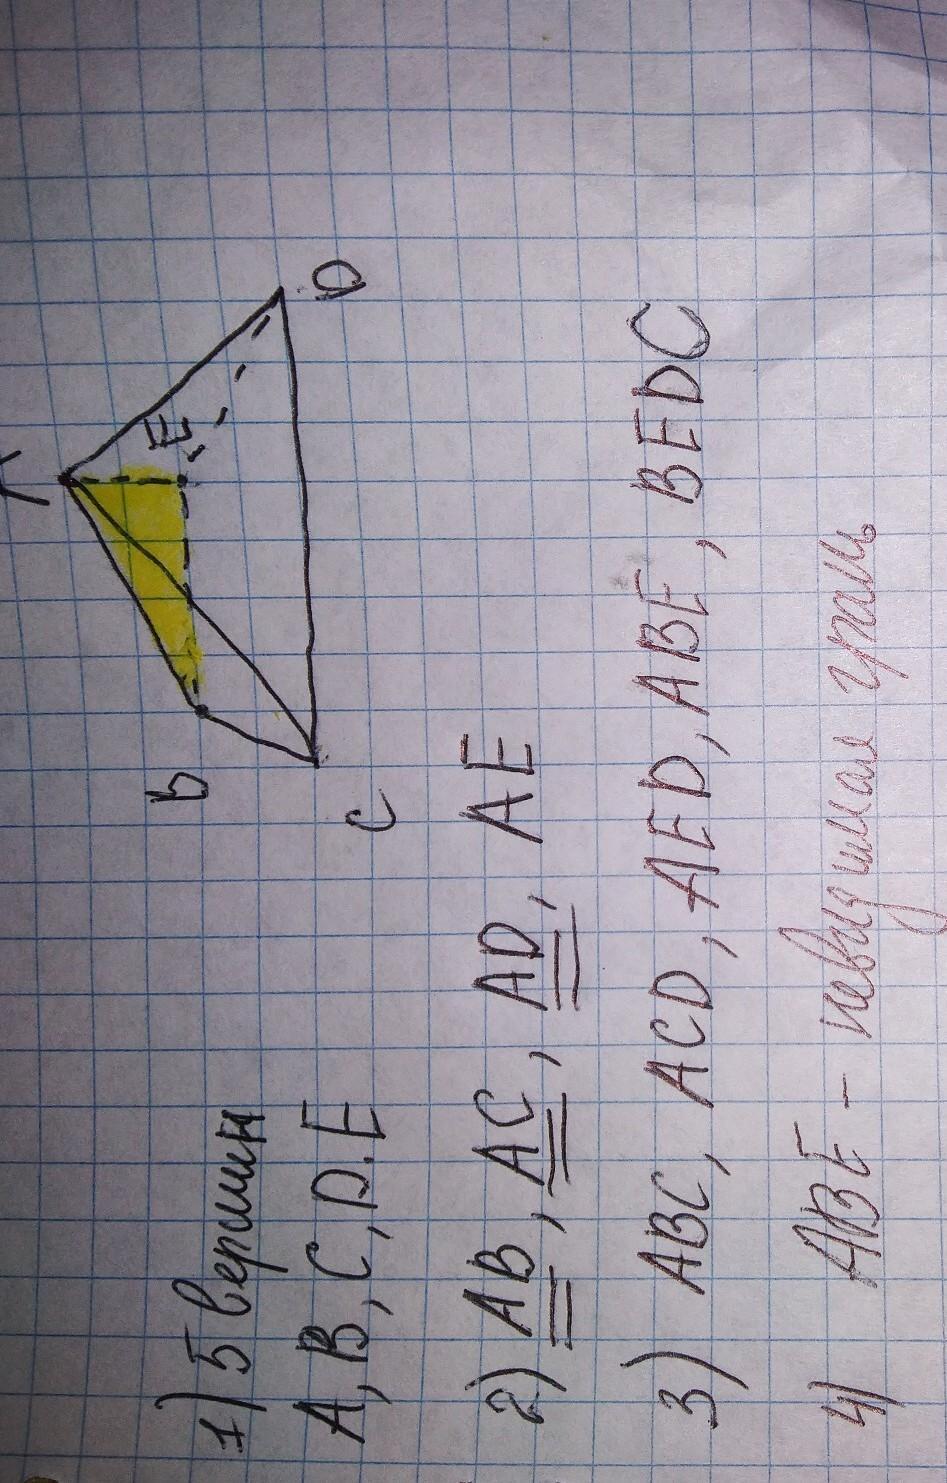 A
B
E
C
D
1) 5 вершин
A, B, C, D, E
2) AB, AC, AD, AE
3) ABC, ACD, AED, ABE, BEDC
4) ABE - невидимая грань